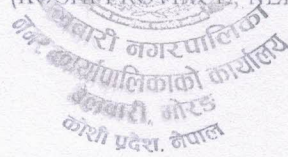 नगरपालिका
नगर कार्यपालिकाको कार्यालय
बेलबारी, मोरङ
कोशी प्रदेश, नेपाल